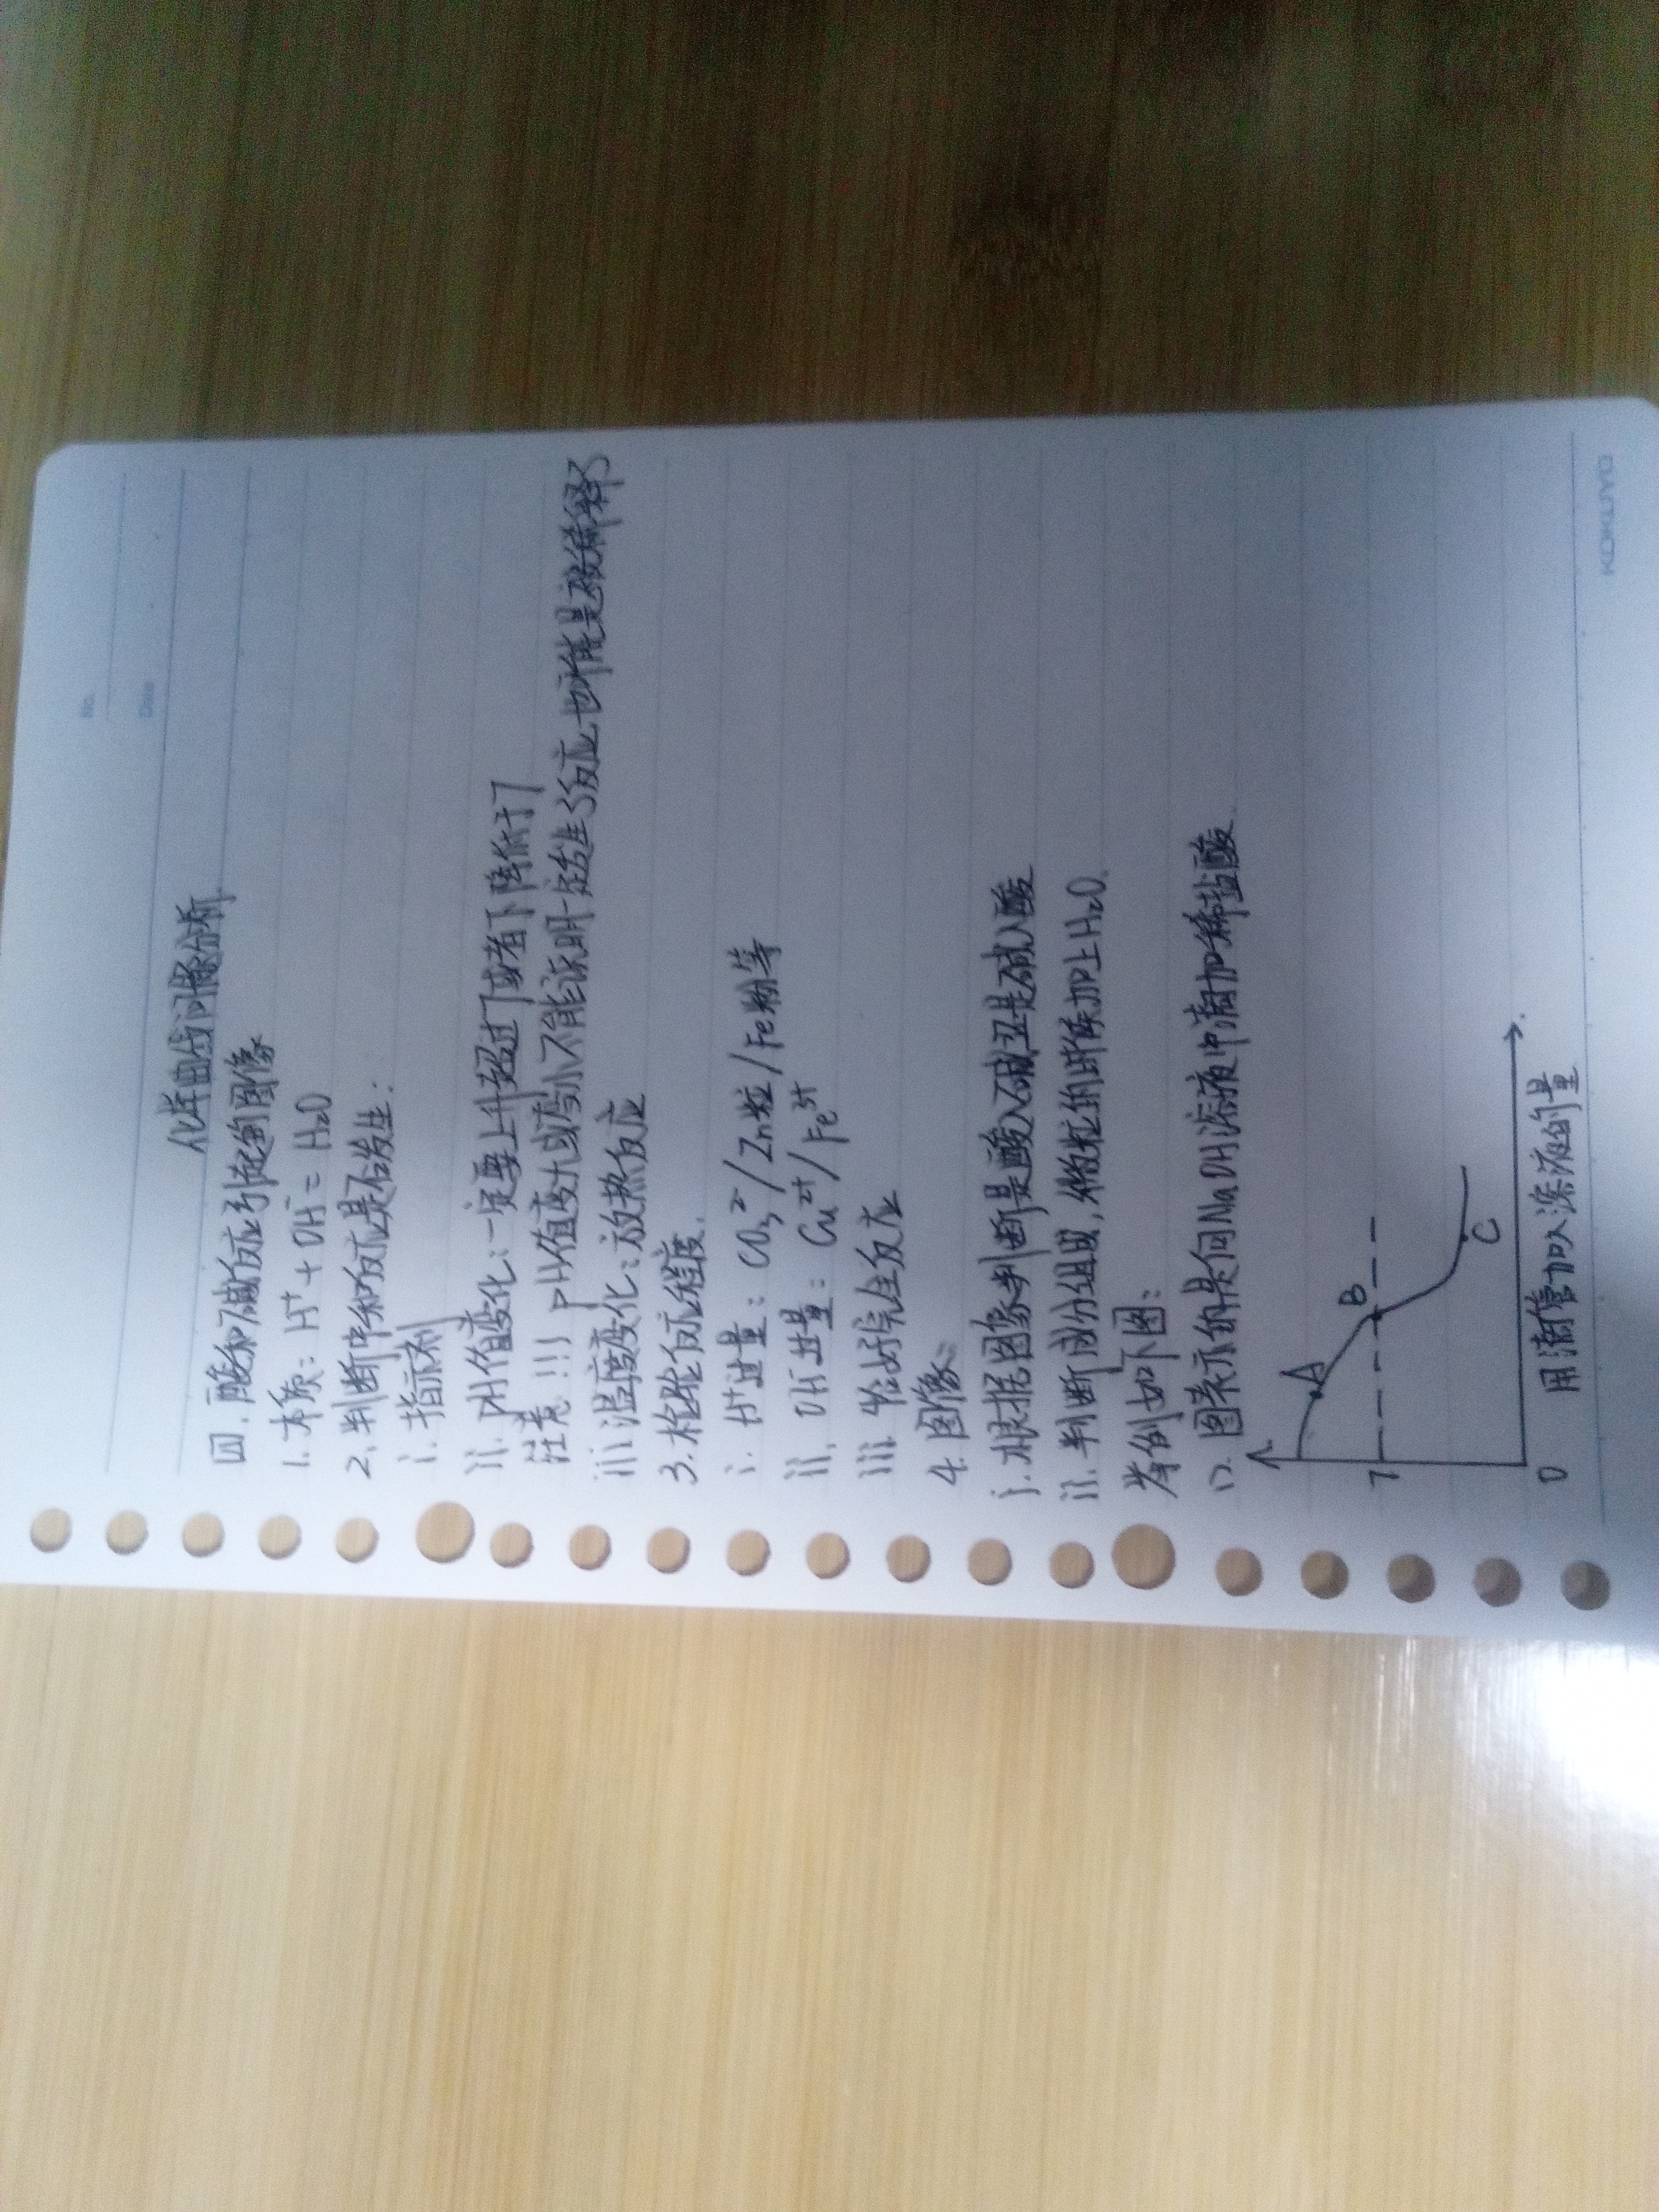 No.
Date
化学曲线问像分析
四.酸和碱反应引起的图像
1.本质:H⁺+OH⁻=H₂O
2.判断中和反应是否发生:
i.指示剂
ii.PH值变化:一定要上升超过7或者下降低于7
注意!!!PH值变大或变小不能说明一定发生了反应,也可能是被稀释了
iii.温度变化:放热反应
3.检验反应程度.
i.H⁺过量:CO₃²⁻/Zn粒/Fe粉等
ii.OH⁻过量:Cu²⁺/Fe³⁺
iii.恰好完全反应
4.图像:
i.根据图象判断是酸入碱还是碱入酸
ii.判断成分组成,微粒的时候加上H₂O.
举例如下图:
1).图表示的是向NaOH溶液中滴加稀盐酸.
A
B
7
C
0
用滴管加入溶液的量
KOKUYO